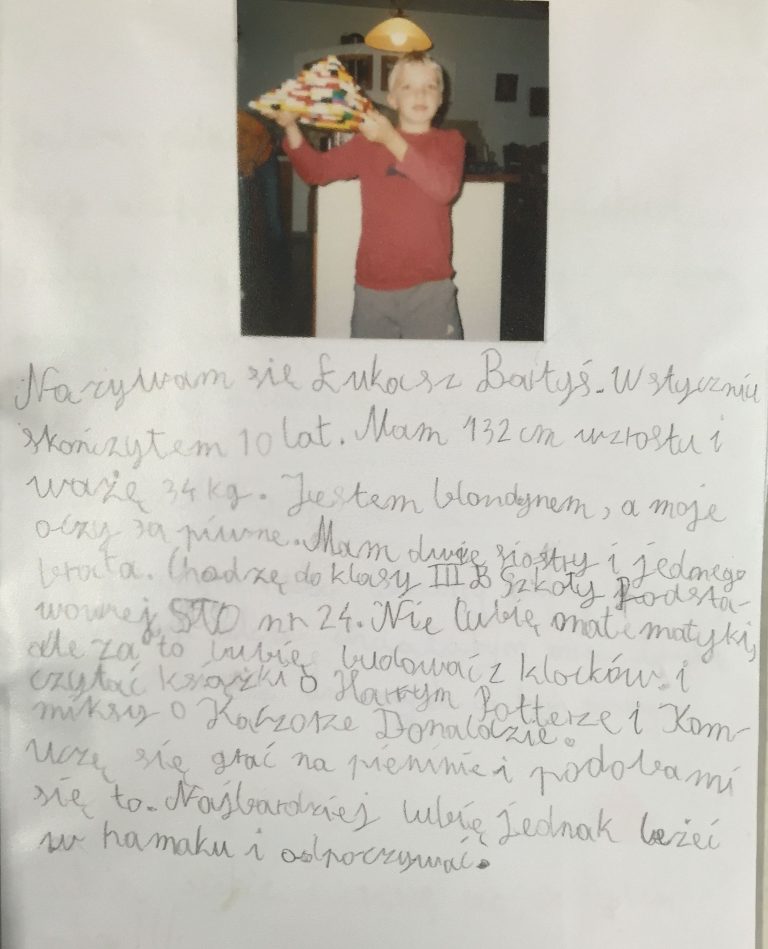 Nazywam się Łukasz Bałtyś. W styczniu
skończyłem 10 lat. Mam 132 cm wzrostu i
ważę 34 kg. Jestem blondynem, a moje
oczy są piwne. Mam dwię siostry i jednego
brata. Chodzę do klasy III B Szkoły Podsta-
wowej STO nr 24. Nie lubię matematyki,
ale za to lubię budować z klocków i
czytać książki o Harrym Potterze i Kom-
miksy o Kaczorze Donaldzie.
Uczę się grać na pieninie i podoba mi
się to. Najbardziej lubię jednak leżeć
w hamaku i odpoczywać.